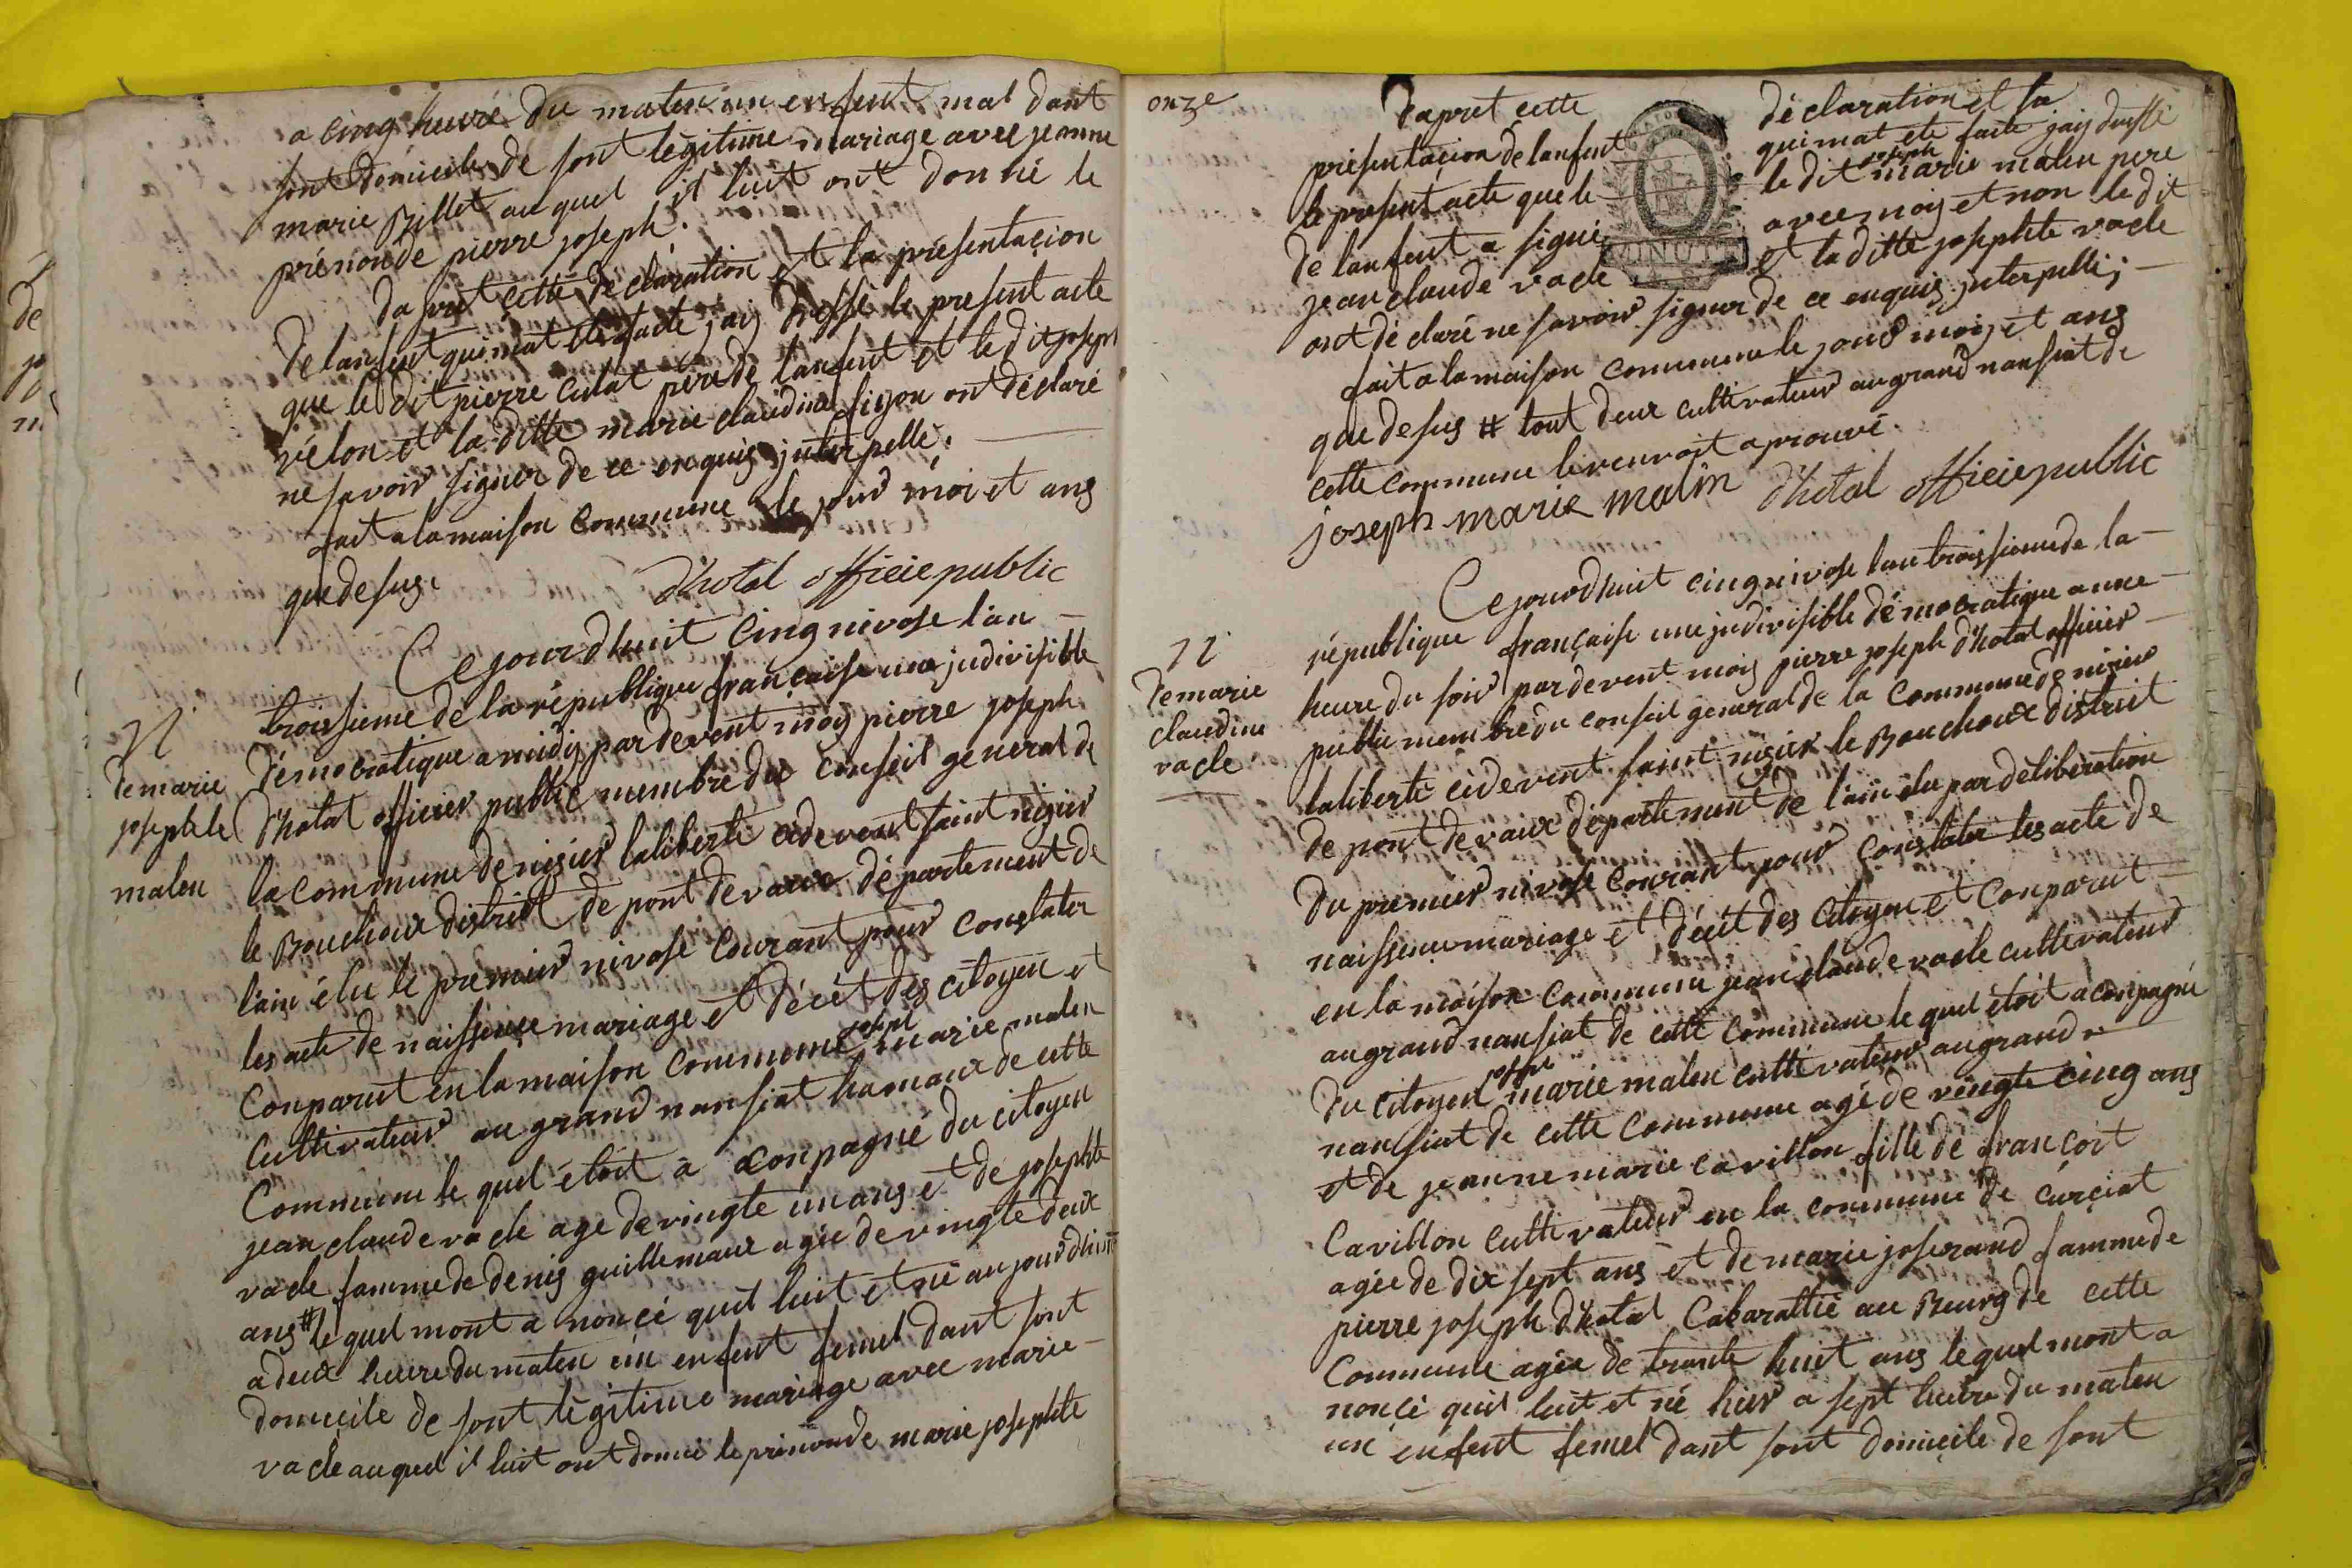 a cinq heure du maten un enfent mal dant
sont domicile de sont légitime mariage avec jeanne
marie Billet auquel il luit ont donné le
prénon de pierre joseph.
Da pret cette déclaration et la présentaçion
de lanfent qui mat été faite jaij dressé le present acte
que le dit pierre culat pere de lanfent et le dit joseph
vélon et la ditte marie claudine figon ont déclaré
ne savoir signer de ce enquis jnterpellé.
fait a la maison commune le jour moi et ans
que desus.
d'hotal officie public
N
de marie
josephte
malen
Ce jourdhuit cinq nivose l'an
troissieme de la république française une jndivisible
démocratique a midij par devent moij pierre joseph
d'hotal officier public membre du conseil general de
la commune de nisier laliberté cidevent saint nisier
le Bouchoux district de pont devaux département de
l'ain élu le premier nivose courant pour constater
les acte de naissence mariage et décét des citoyen et
conparut en la maison commune joseph marie malen
cultivateur au grand nansiat hamaux de cette
commune le quel étoit a aconpagné du citoyen
jean claude vacle age de vingte un ans et de josephte
vacle famme de denis guillemaux agée de vingte deux
ans # le quel mont a noncé quil luit et né aujourdhuit
a deux heure du maten un enfent femel dant sont
domicile de sont légitime mariage avec marie
vacle auquel il luit ont donné le prénon de marie josephte
onze
Dapret cette déclaration et la
présentacion de lanfent qui mat été faite jaij dressé
le present acte que le le dit joseph marie malen pere
de lanfent a signé avec moij et non le dit
jean claude vacle et la ditte josephte vacle
MINUTE
ont déclaré ne savoir signer de ce enquis jnterpellé;
fait a la maison commune le jour mois et ans
que desus # tout deux cultivateur au grand nansiat de
cette commune le renvoit aprouvé.
joseph marie malin d'hotal officie public
N
de marie
claudine
vacle
Ce jourdhuit cinq nivose l'an troissieme de la
république française une jndivisible démocratique a une
heure du soir par devent mois pierre joseph d'hotal officier
public membre du conseil general de la commune de nisier
laliberté cidevent saint nisier le Bouchoux district
de pont devaux département de l'ain élu par délibération
du premier nivose courant pour constater les acte de
naissence mariage et décét des citoyen et conparut
en la maison commune jean claude vacle cultivateur
au grand nansiat de cette commune le quel étoit aconpagné
du citoyen joseph marie malen cultivateur au grand
nansiat de cette commune agé de vingte cinq ans
et de jeanne marie cavillon fille de françoit
Cavillon cultivateur en la commune de curciat
agée de dix sept ans et de marie joserand famme de
pierre joseph d'hotal Cabarattié au Bourg de cette
commune agée de trante huit ans le quel mont a
noncé quil luit et né hier a sept heure du maten
un enfent femel dant sont domicile de sont